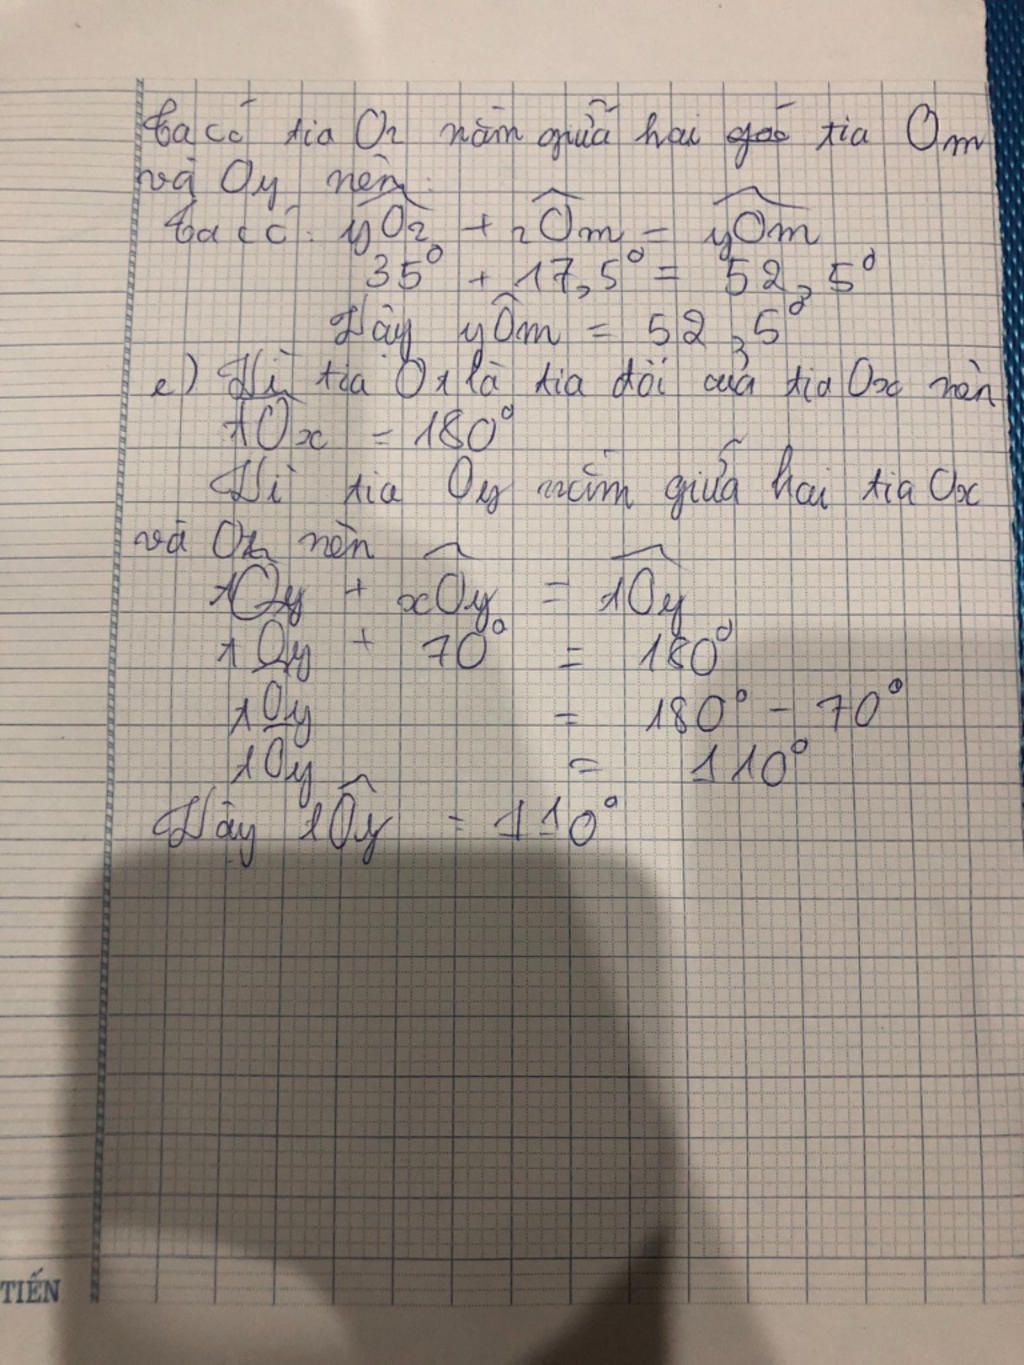 Ta có tia Oz nằm giữa hai góc tia Om
và Oy nên:
Ta có: yOz + zOm = yOm
35° + 17,5° = 52,5°
Vậy yOm = 52,5°
c) Vì tia Ot là tia đối của tia Ox nên
tOx = 180°
Vì tia Oy nằm giữa hai tia Ox
và Ot nên
tOy + xOy = tOy
tOy + 70° = 180°
tOy = 180° - 70°
tOy = 110°
Vậy tOy = 110°
TIẾN